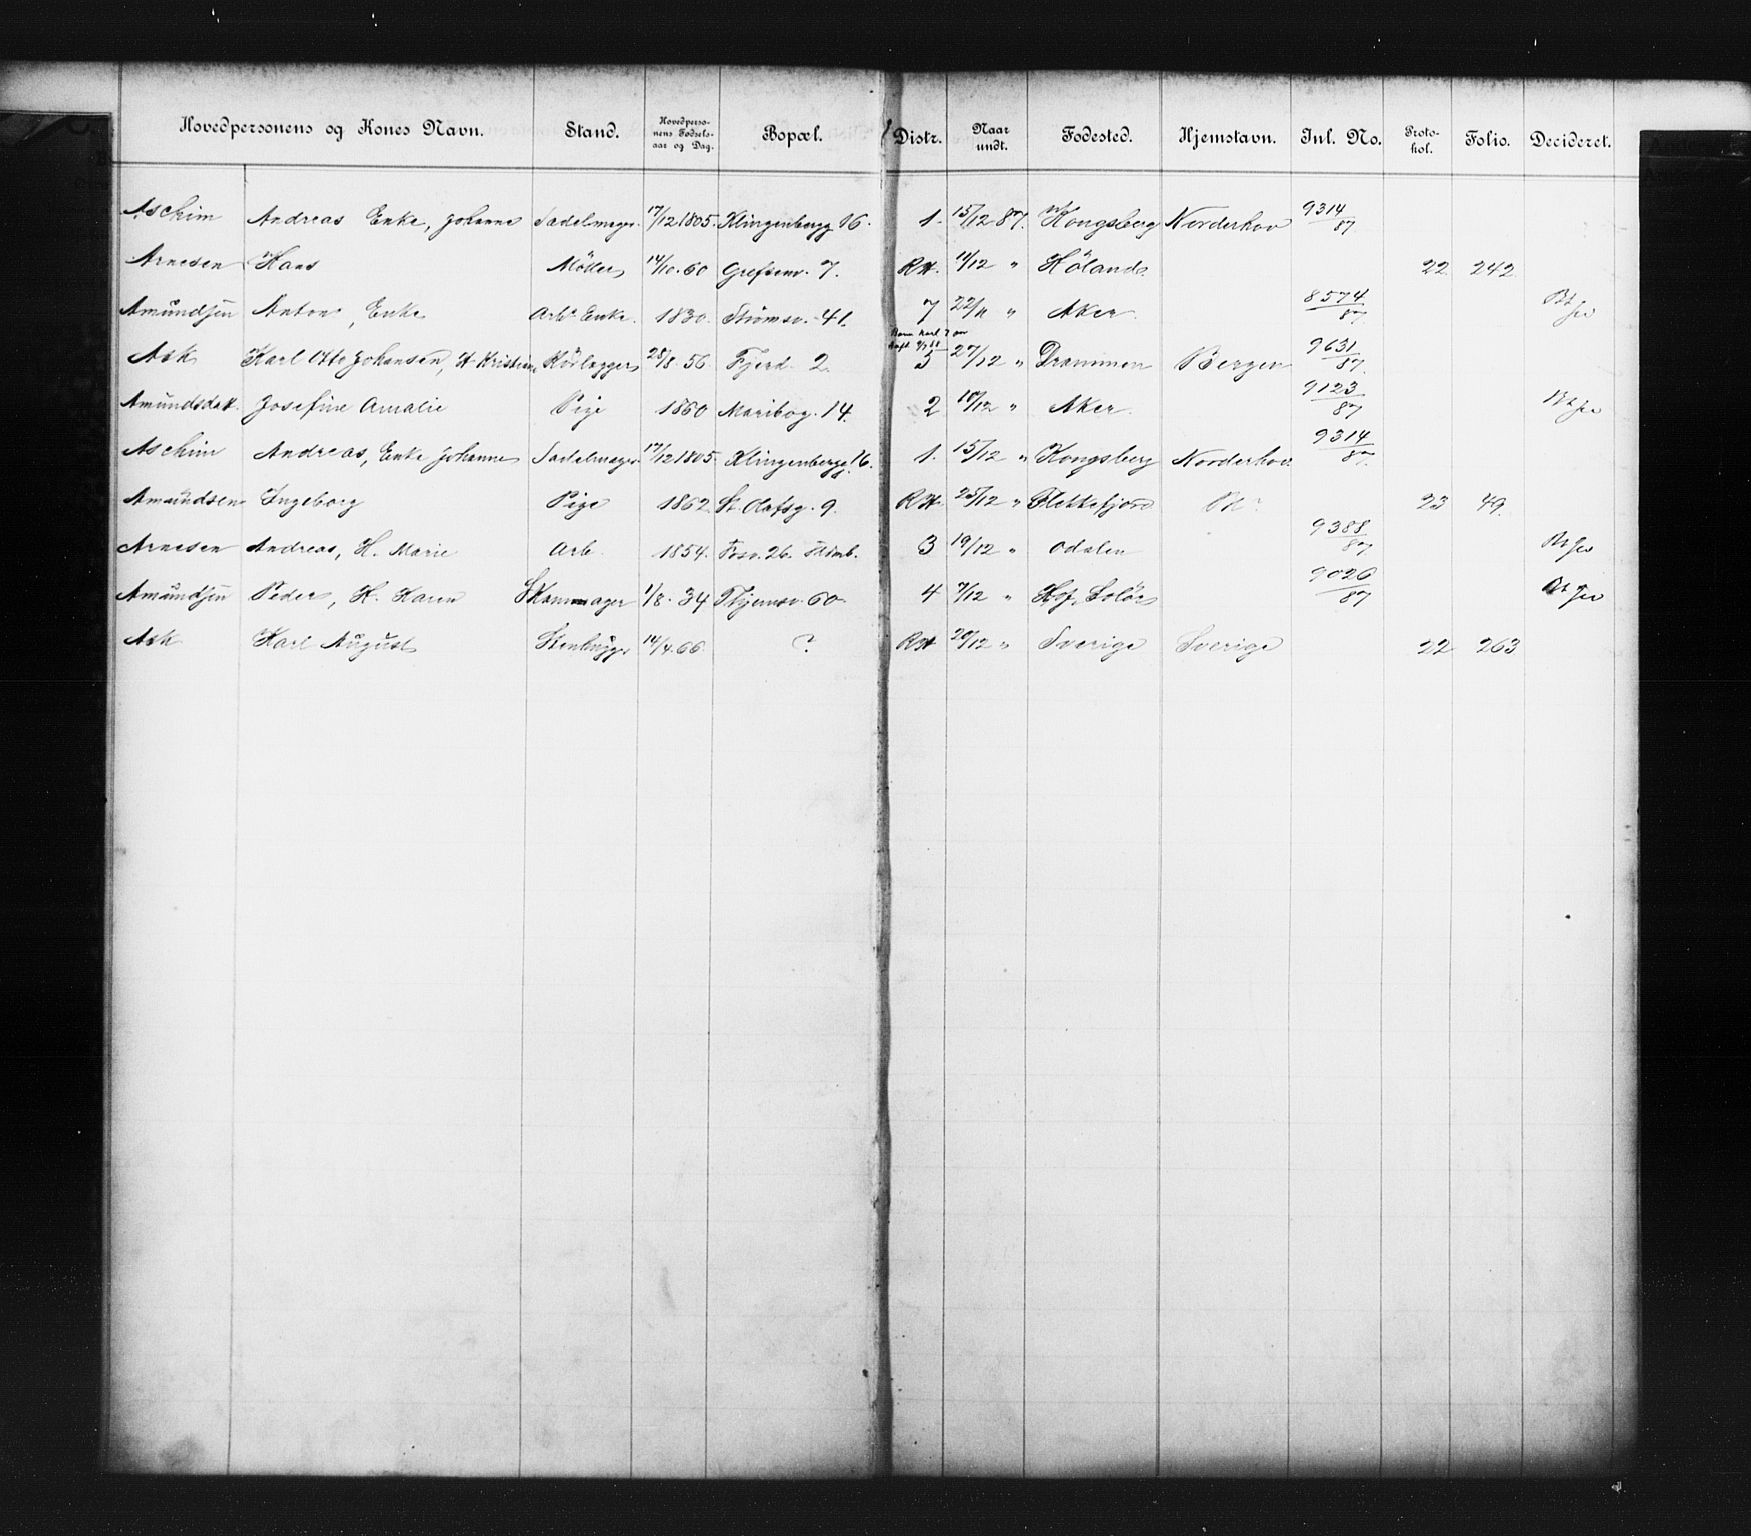 Hovedpersonens og Kones Navn. Stand. Hovedperso-nens Fødsels-aar og Dag. Bopæl. Distr. Naar undt. Fødested. Hjemstavn. Inl. No. Proto-kol. Folio. Decideret.
Aschim Andreas Enke, Johanne Sadelmager 17/12 1805. Klingenbergg 16. 1. 15/12 87. Kongsberg Norderhov 9314/87
Arnesen Hans Møller 14/10. 60 Grefsenv. 7. RH. 14/12 " Höland 22 242
Amundsen Anton, Enke Arb. Enke. 1830. Strömsv. 41. 7 22/11 " Aker 8574/87
Ask Karl Otto Johansen, H Kristiane 28/8. 56 Fjerd. 2. 5 27/12 " Drammen Bergen 9631/87
Amundsdat. Josefine Amalie Pige 1860 Maribog. 14. 2 10/12 " Aker 9123/87
Aschim Andreas, Enke Johanne Sadelmager 17/12 1805. Klingenbergg. 16. 1. 15/12 " Kongsberg Norderhov 9314/87
Amundsen Ingeborg Pige 1862 St. Olafsg. 9. RH 25/12 " Flekkefjord 23 49.
Arnesen Andreas, H. Marie Arb. 1854. 26. 3 19/12 " Odalen 9388/87
Amundsen Peder, H. Karen Skommager 1/8. 34 60 4 7/12 " Hof, Solör 9026/87
Ask Karl August Stenhugger 14/4. 66. ? RH 20/12 " Sverige Sverige 22 263